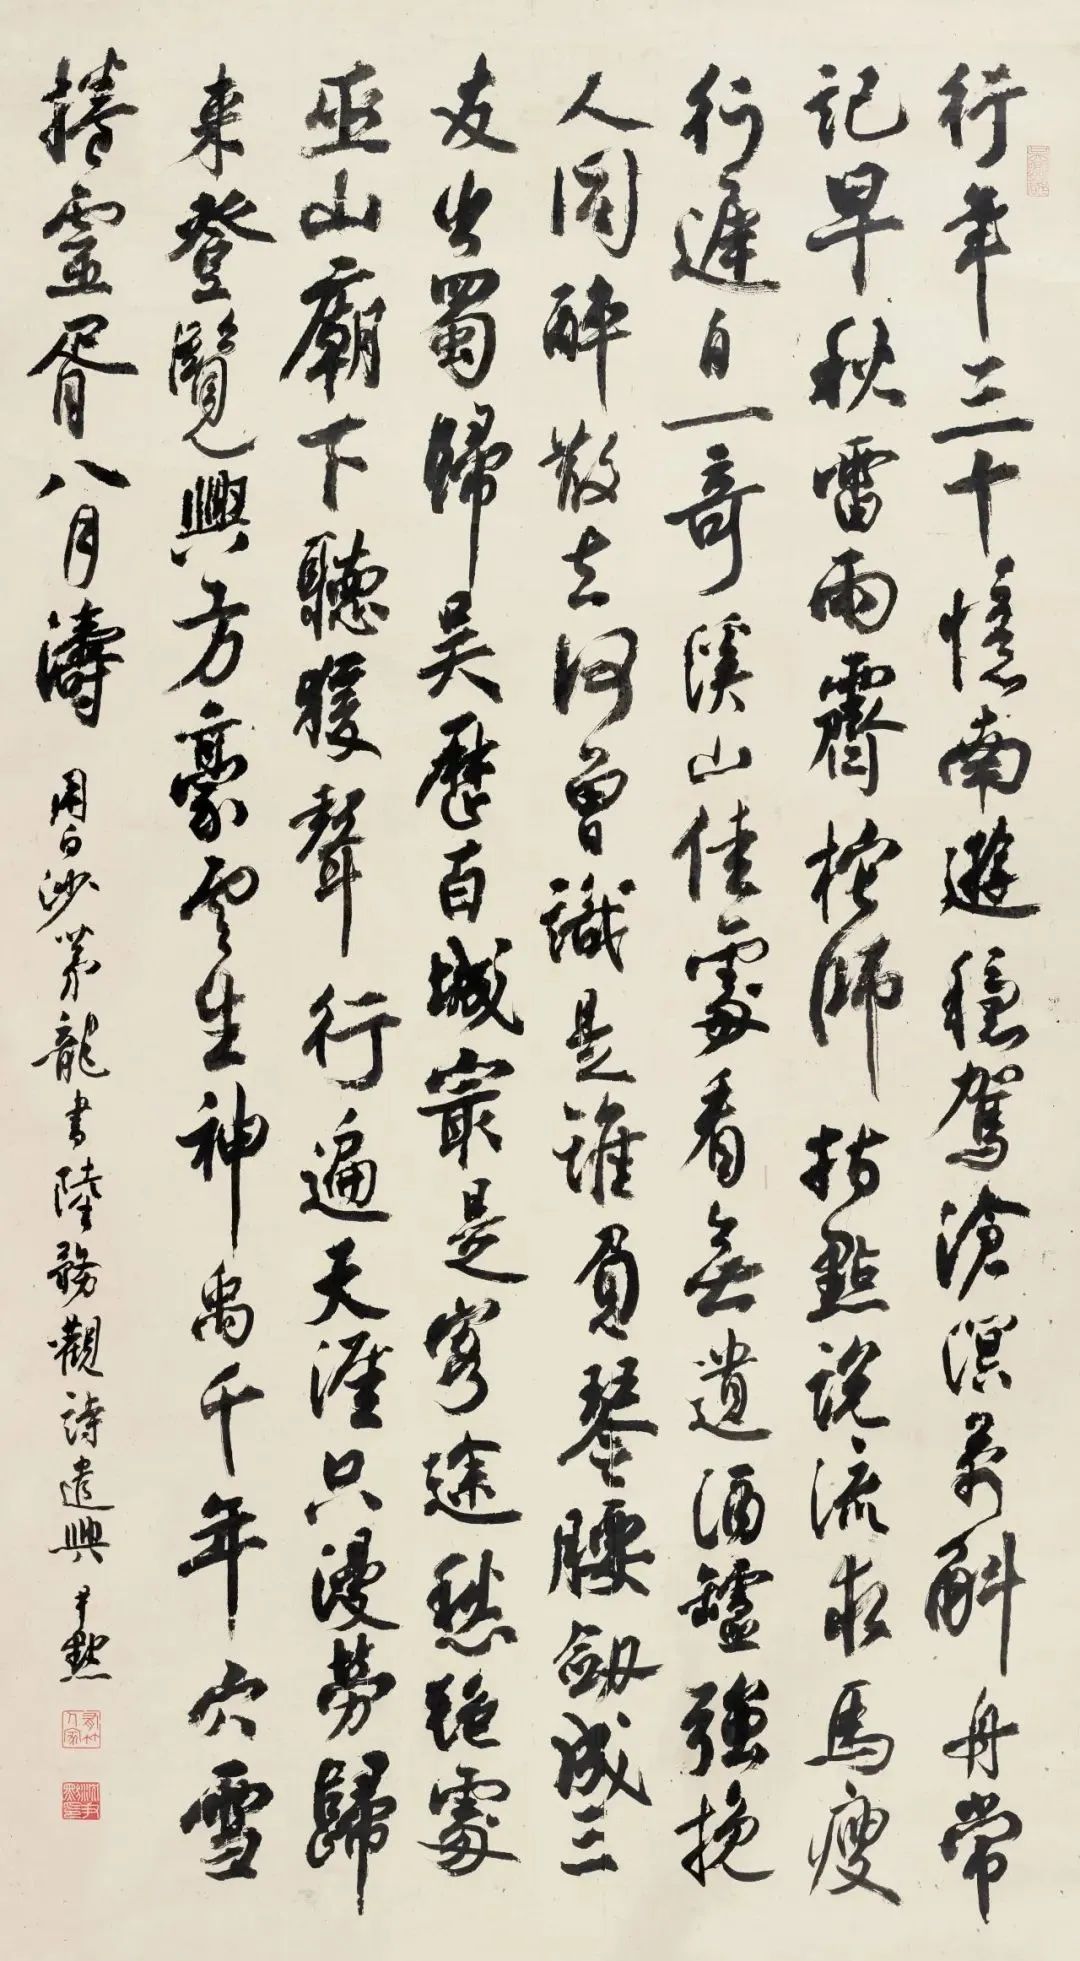 行年三十憶南遊穩駕滄溟萬斛舟常
記早秋雷雨霽柁師指點說流求馬瘦
行遲自一奇溪山佳處看無遺酒罏強挽
人同醉散去何曾識是誰負琴腰劒成三
友出蜀歸吳歷百城最是客途愁絕處
巫山廟下聽猨聲行遍天涯只漫勞歸
来登覽興方豪雲生神禹千年穴雪
捲靈胥八月濤
用白沙茅龍書陸務觀詩遣興 尹默